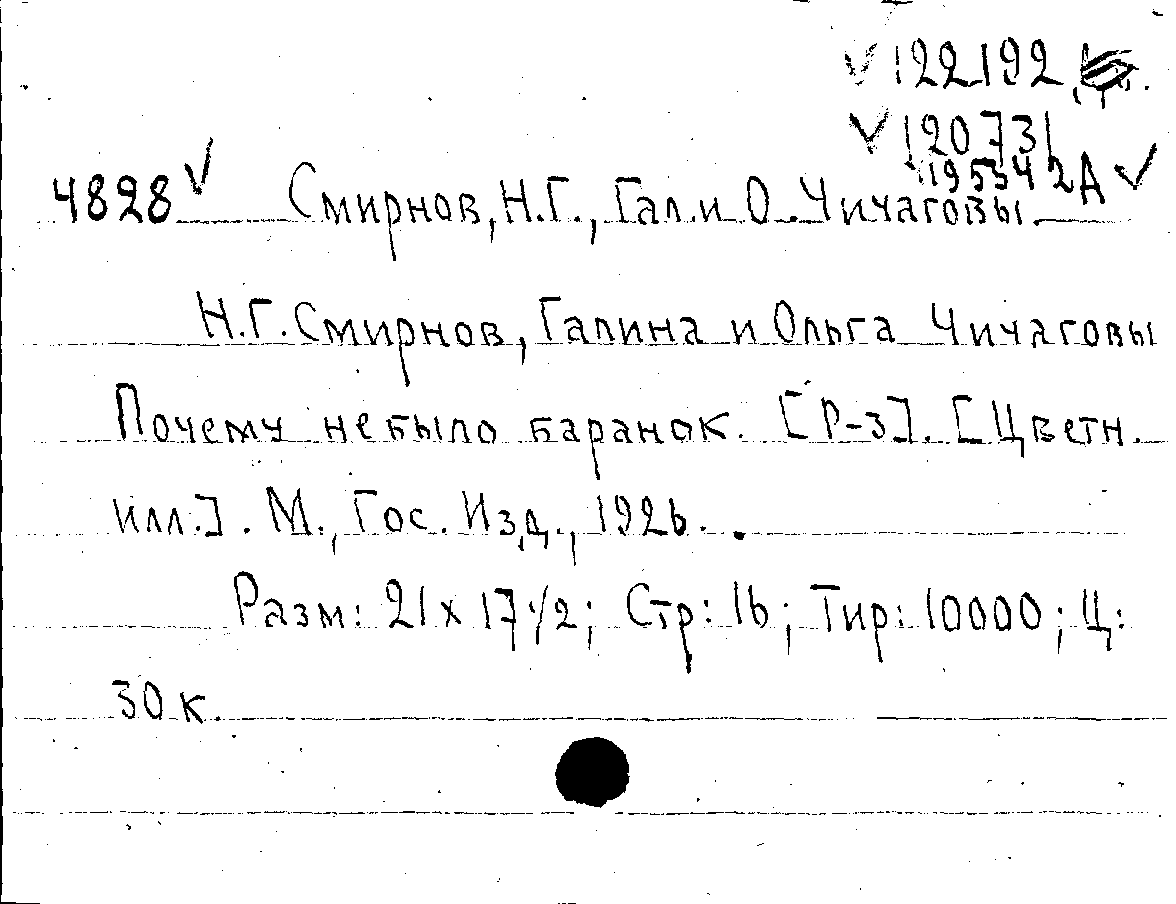 122192
120731
119554 2А
4828 Смирнов, Н.Г., Гал. и О. Чичаговы.
Н.Г. Смирнов, Галина и Ольга Чичаговы
Почему не было баранок. [Р-3]. [Цветн.
илл.]. М., Гос. Изд., 1926.
Разм: 21 х 17 1/2; Стр: 16; Тир: 10000; Ц:
30 к.